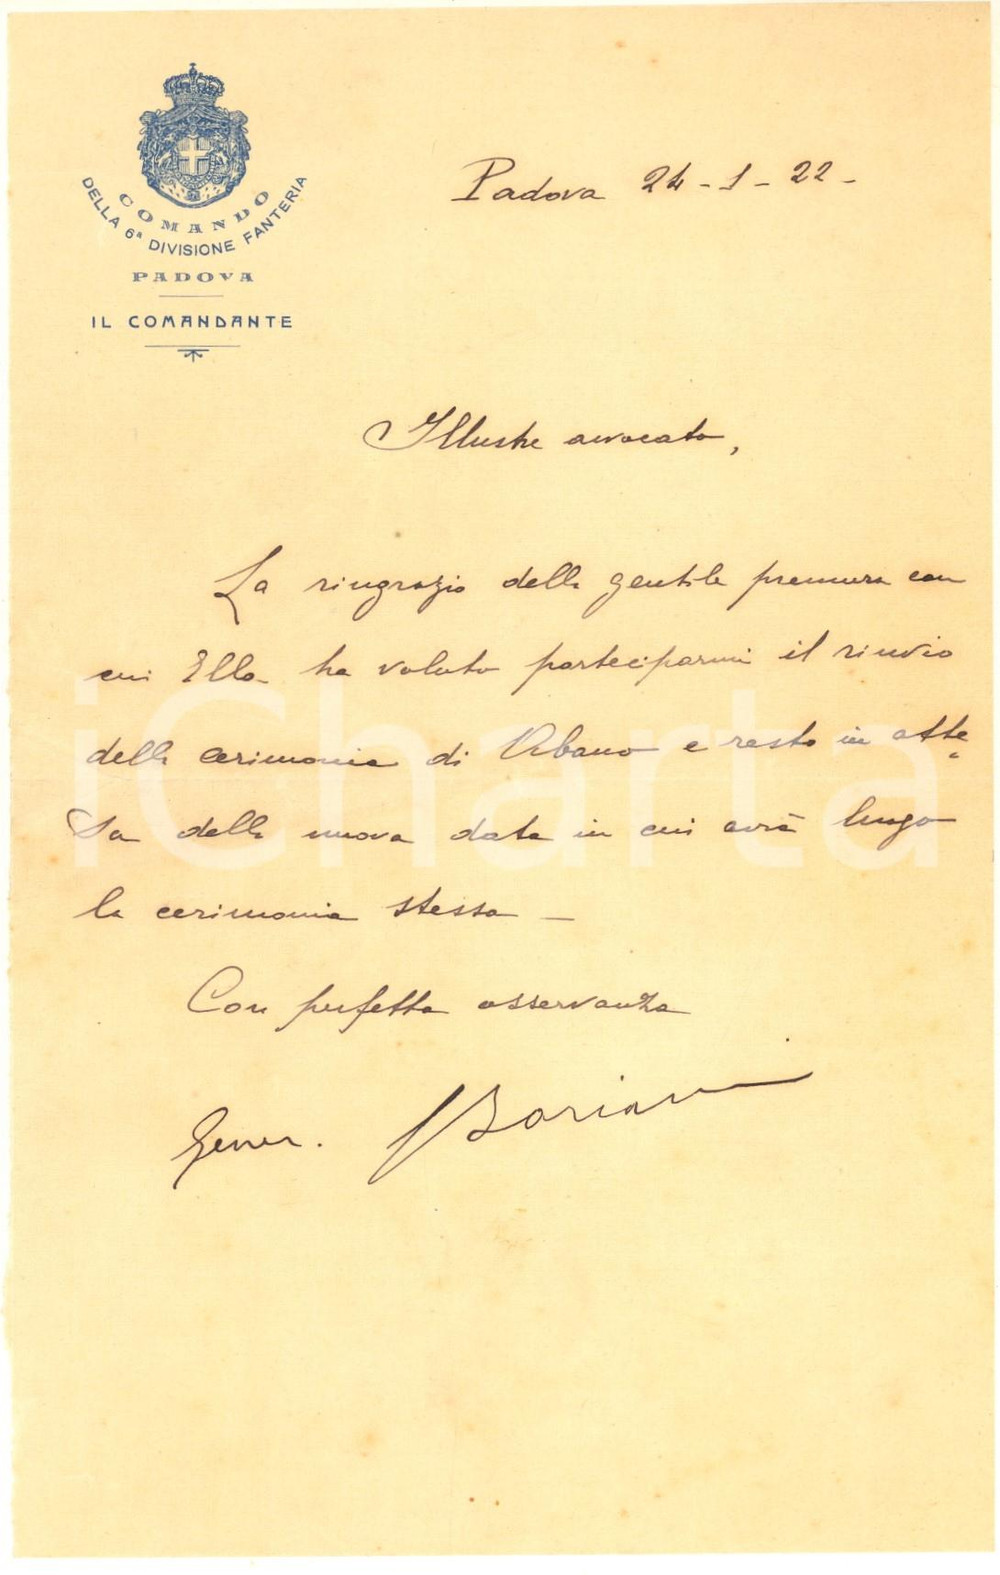 COMANDO
DELLA 6ª DIVISIONE FANTERIA
PADOVA
IL COMANDANTE
Padova 24-1-22-
Illustre avvocato,
La ringrazio della gentile premura con
cui Ella ha voluto parteciparmi il rinvio
della cerimonia di Urbano e resto in atte=
sa della nuova data in cui avrà luogo
la cerimonia stessa -
Con perfetta osservanza
Gener. Boriani
iCharta